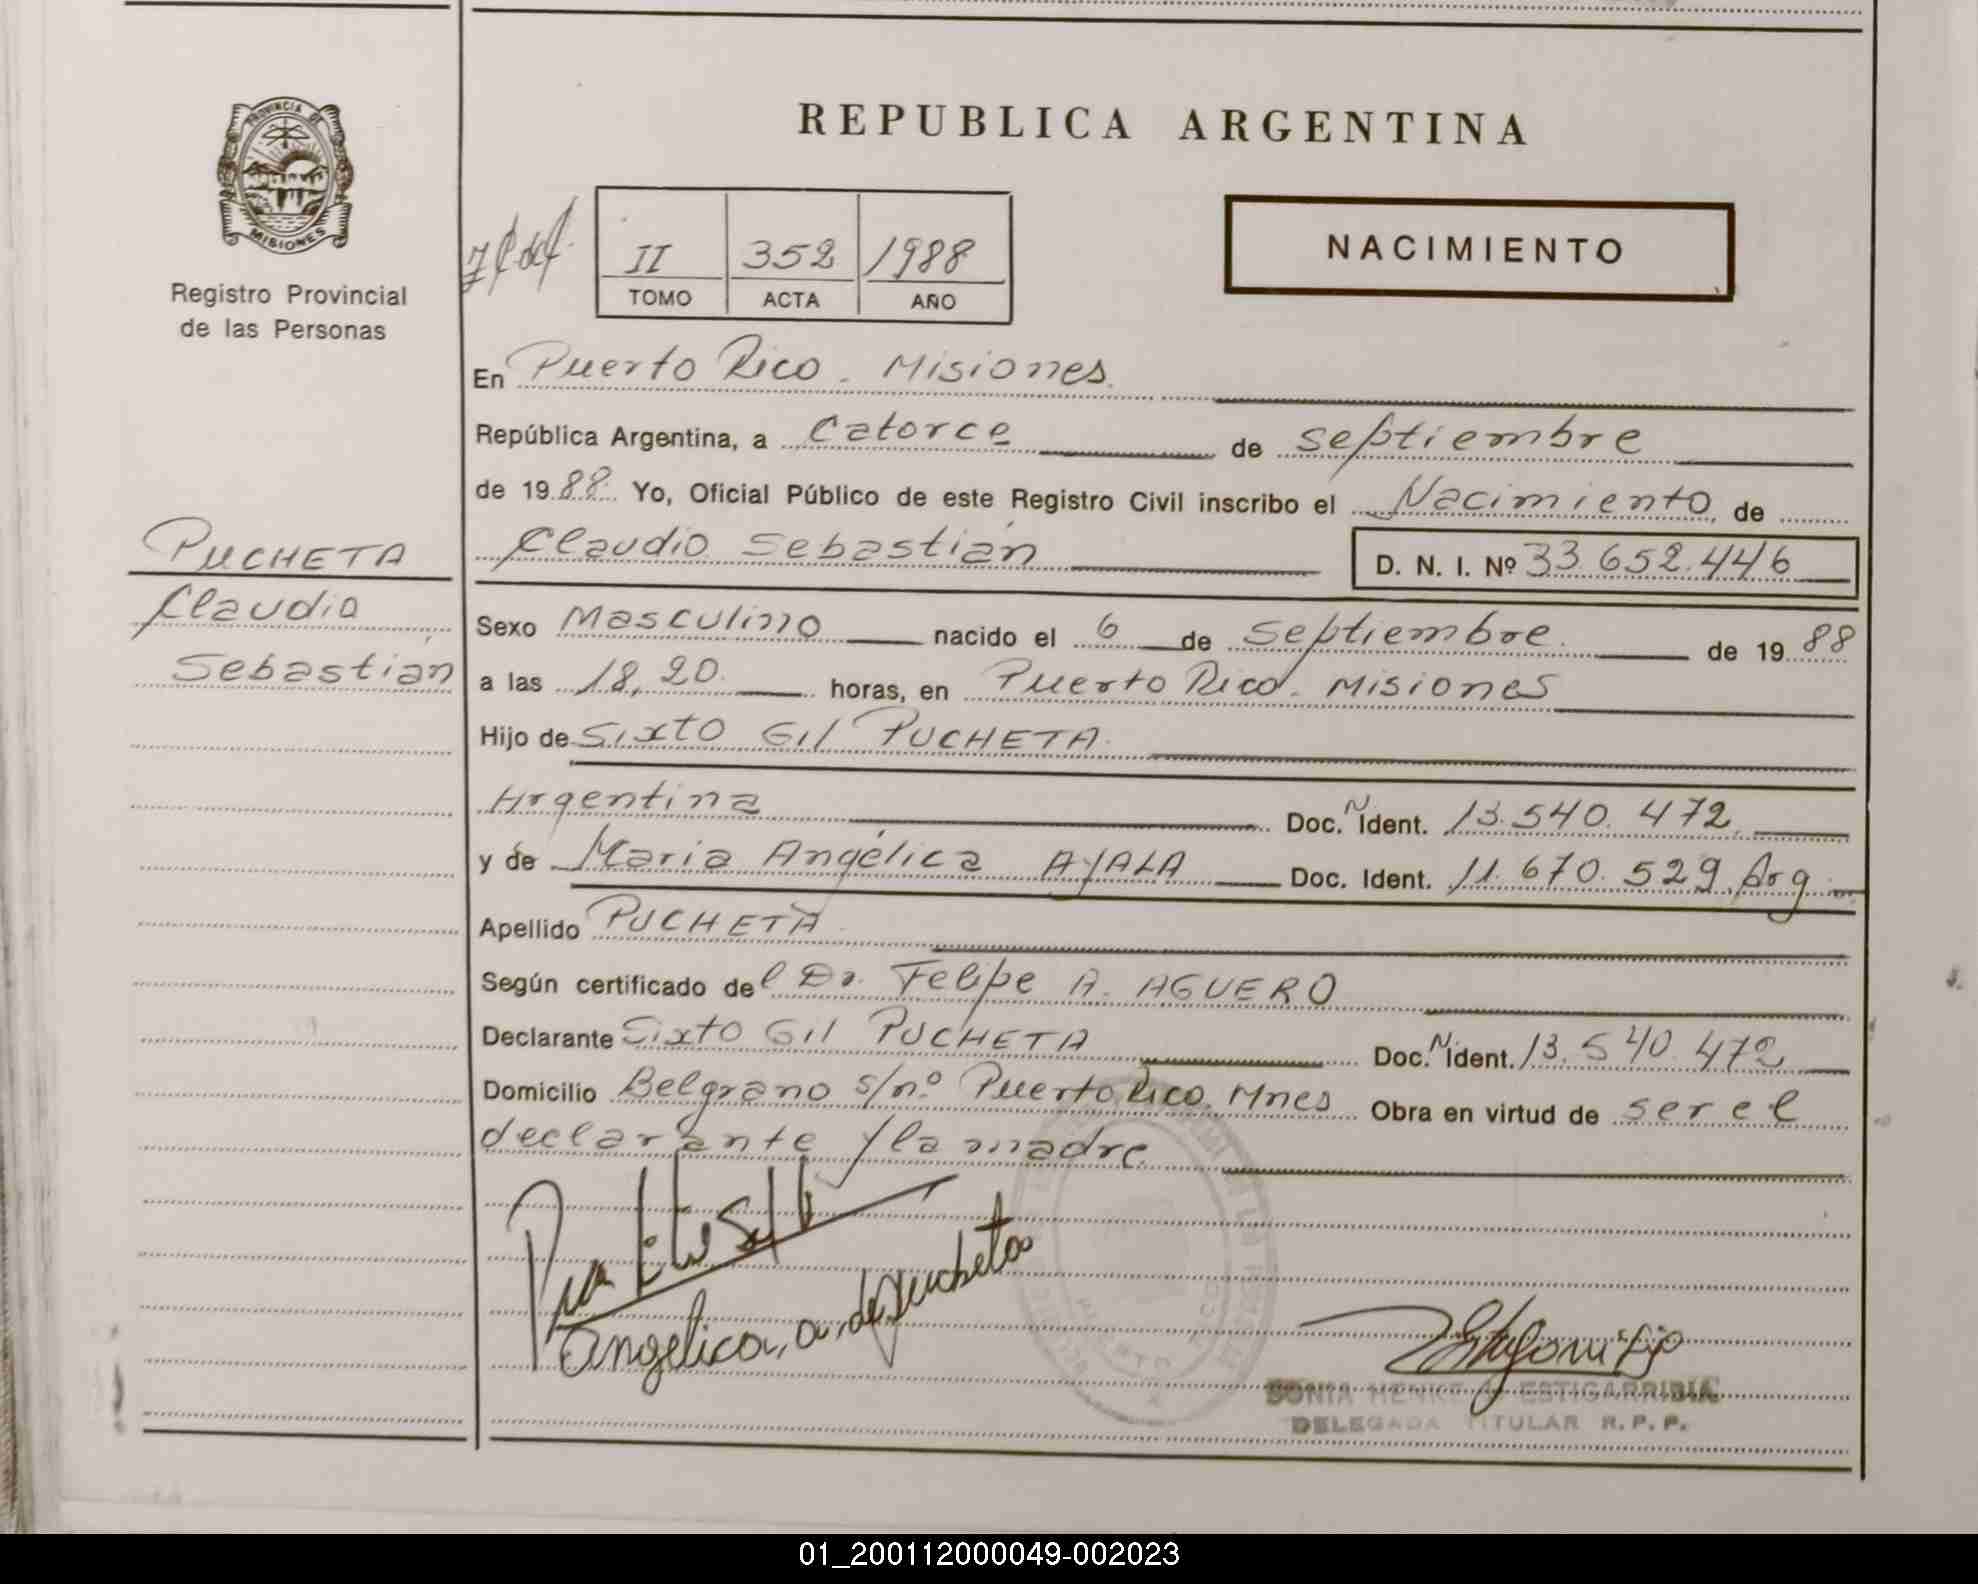 REPUBLICA ARGENTINA
PROVINCIA DE
MISIONES
Registro Provincial
de las Personas
II 352 1988
TOMO ACTA AÑO
NACIMIENTO
En Puerto Rico. Misiones.
República Argentina, a Catorce de septiembre
de 1988. Yo, Oficial Público de este Registro Civil inscribo el Nacimiento de
Claudio Sebastián D. N. I. Nº 33.652.446
PUCHETA
Claudio
Sebastián
Sexo Masculino nacido el 6 de Septiembre. de 1988
a las 18,20. horas, en Puerto Rico. Misiones
Hijo de Sixto Gil PUCHETA.
Argentina Doc. N Ident. 13.540.472.
y de María Angélica AYALA Doc. Ident. 11.670.529 Arg.
Apellido PUCHETA.
Según certificado del Dr. Felipe A. AGUERO
Declarante Sixto Gil PUCHETA Doc. N Ident. 13.540.472
Domicilio Belgrano s/nº Puerto Rico. Mnes Obra en virtud de ser el
declarante y la madre
Angelica, a, de Pucheta
SONIA HENKE de ESTIGARRIBIA
DELEGADA TITULAR R.P.P.
01_200112000049-002023